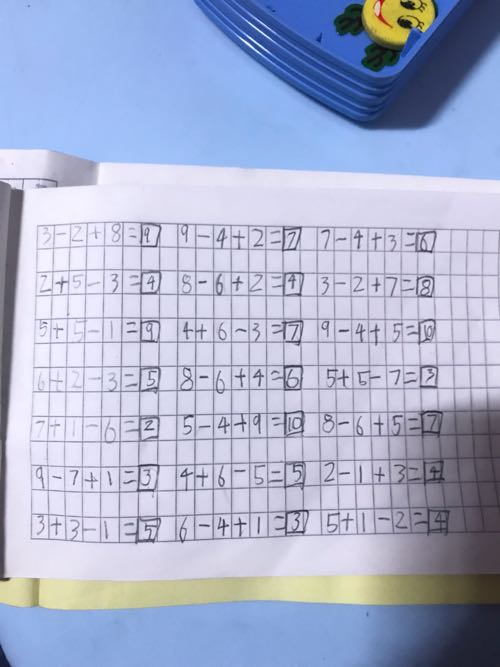 3-2+8=9 9-4+2=7 7-4+3=6
2+5-3=4 8-6+2=4 3-2+7=8
5+5-1=9 4+6-3=7 9-4+5=10
6+2-3=5 8-6+4=6 5+5-7=3
7+1-6=2 5-4+9=10 8-6+5=7
9-7+1=3 4+6-5=5 2-1+3=4
3+3-1=5 6-4+1=3 5+1-2=4